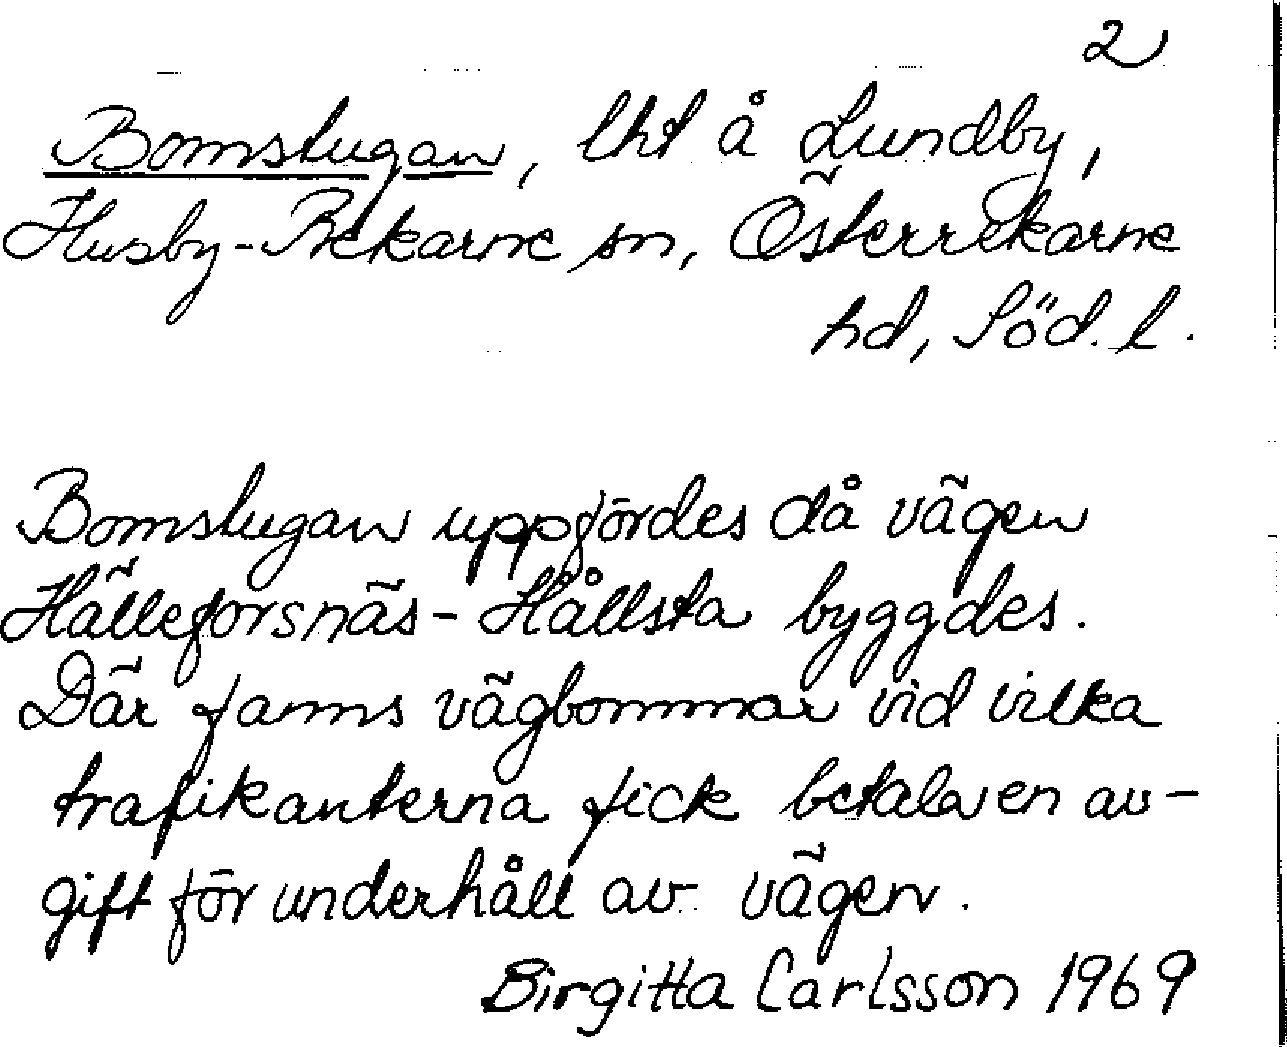 2
Bomstugan, lht å Lundby,
Husby-Rekarne sn, Österrekarne
hd, Söd. l.
Bomstugan uppfördes då vägen
Hälleforsnäs - Hållsta byggdes.
Där fanns vägbommar vid vilka
trafikanterna fick betala en av-
gift för underhåll av vägen.
Birgitta Carlsson 1969